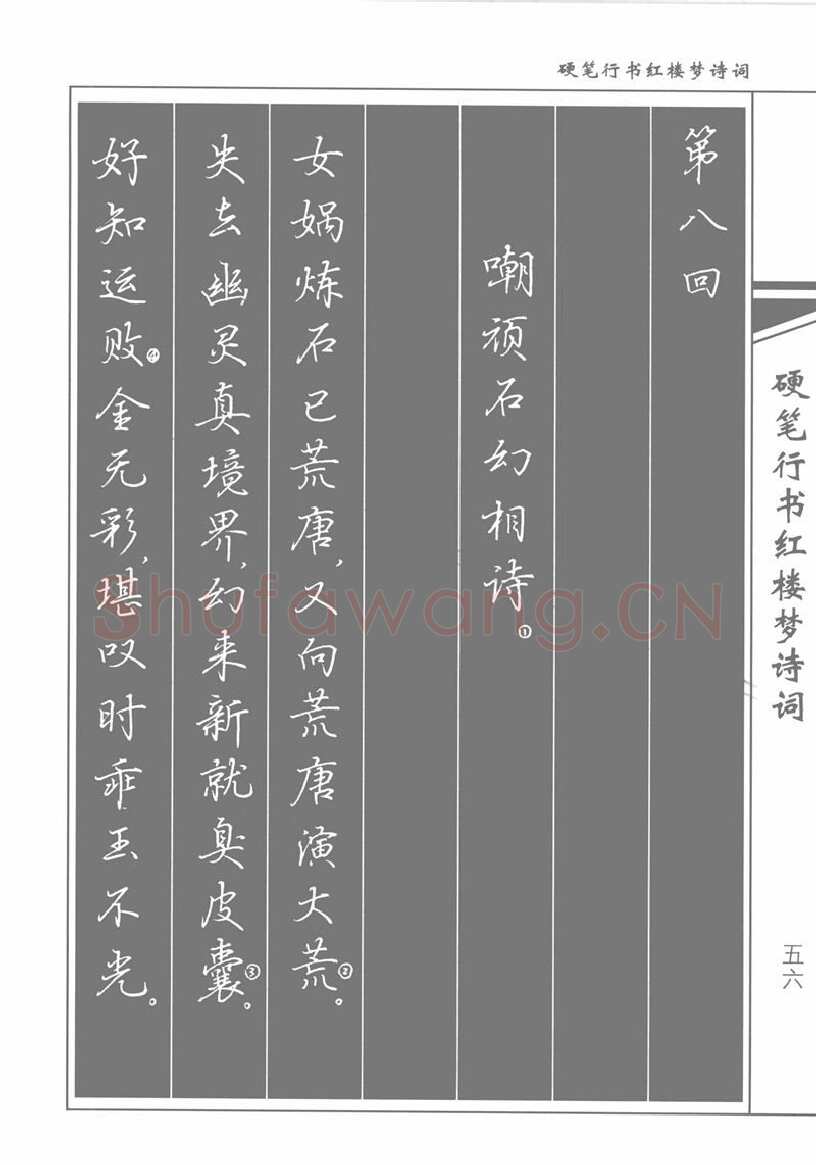 硬笔行书红楼梦诗词
第八回
嘲顽石幻相诗①
女娲炼石已荒唐，又向荒唐演大荒②。
失去幽灵真境界，幻来新就臭皮囊③。
好知运败④金无彩，堪叹时乖玉不光。
硬笔行书红楼梦诗词
五六
Shufawang.CN